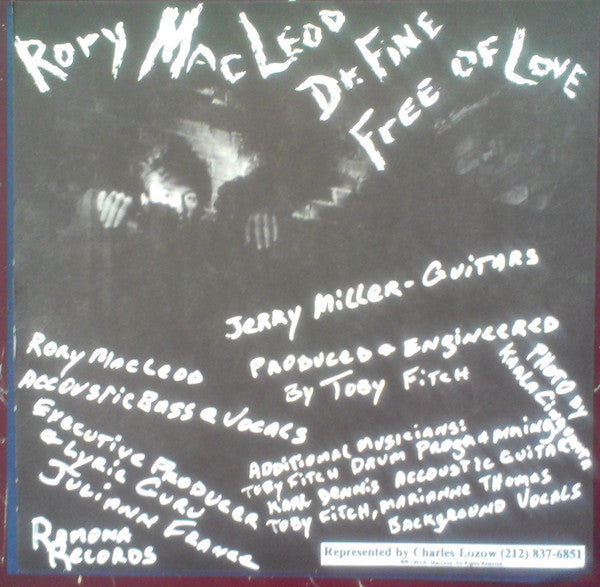 Rory MacLeod
DeFine
Free of Love
Jerry Miller - Guitars
Produced & Engineered
By Toby Fitch
Rory MacLeod
Accoustic Bass & Vocals
Executive Producer
& Lyric Guru
Juliann France
Ramona
Records
Additional Musicians:
Toby Fitch Drum Programming
Karl Dennis Accoustic Guitar
Toby Fitch, Marianne Thomas
Background Vocals
Photo by
Karla
Represented by Charles Lozow (212) 837-6851
All Rights Reserved